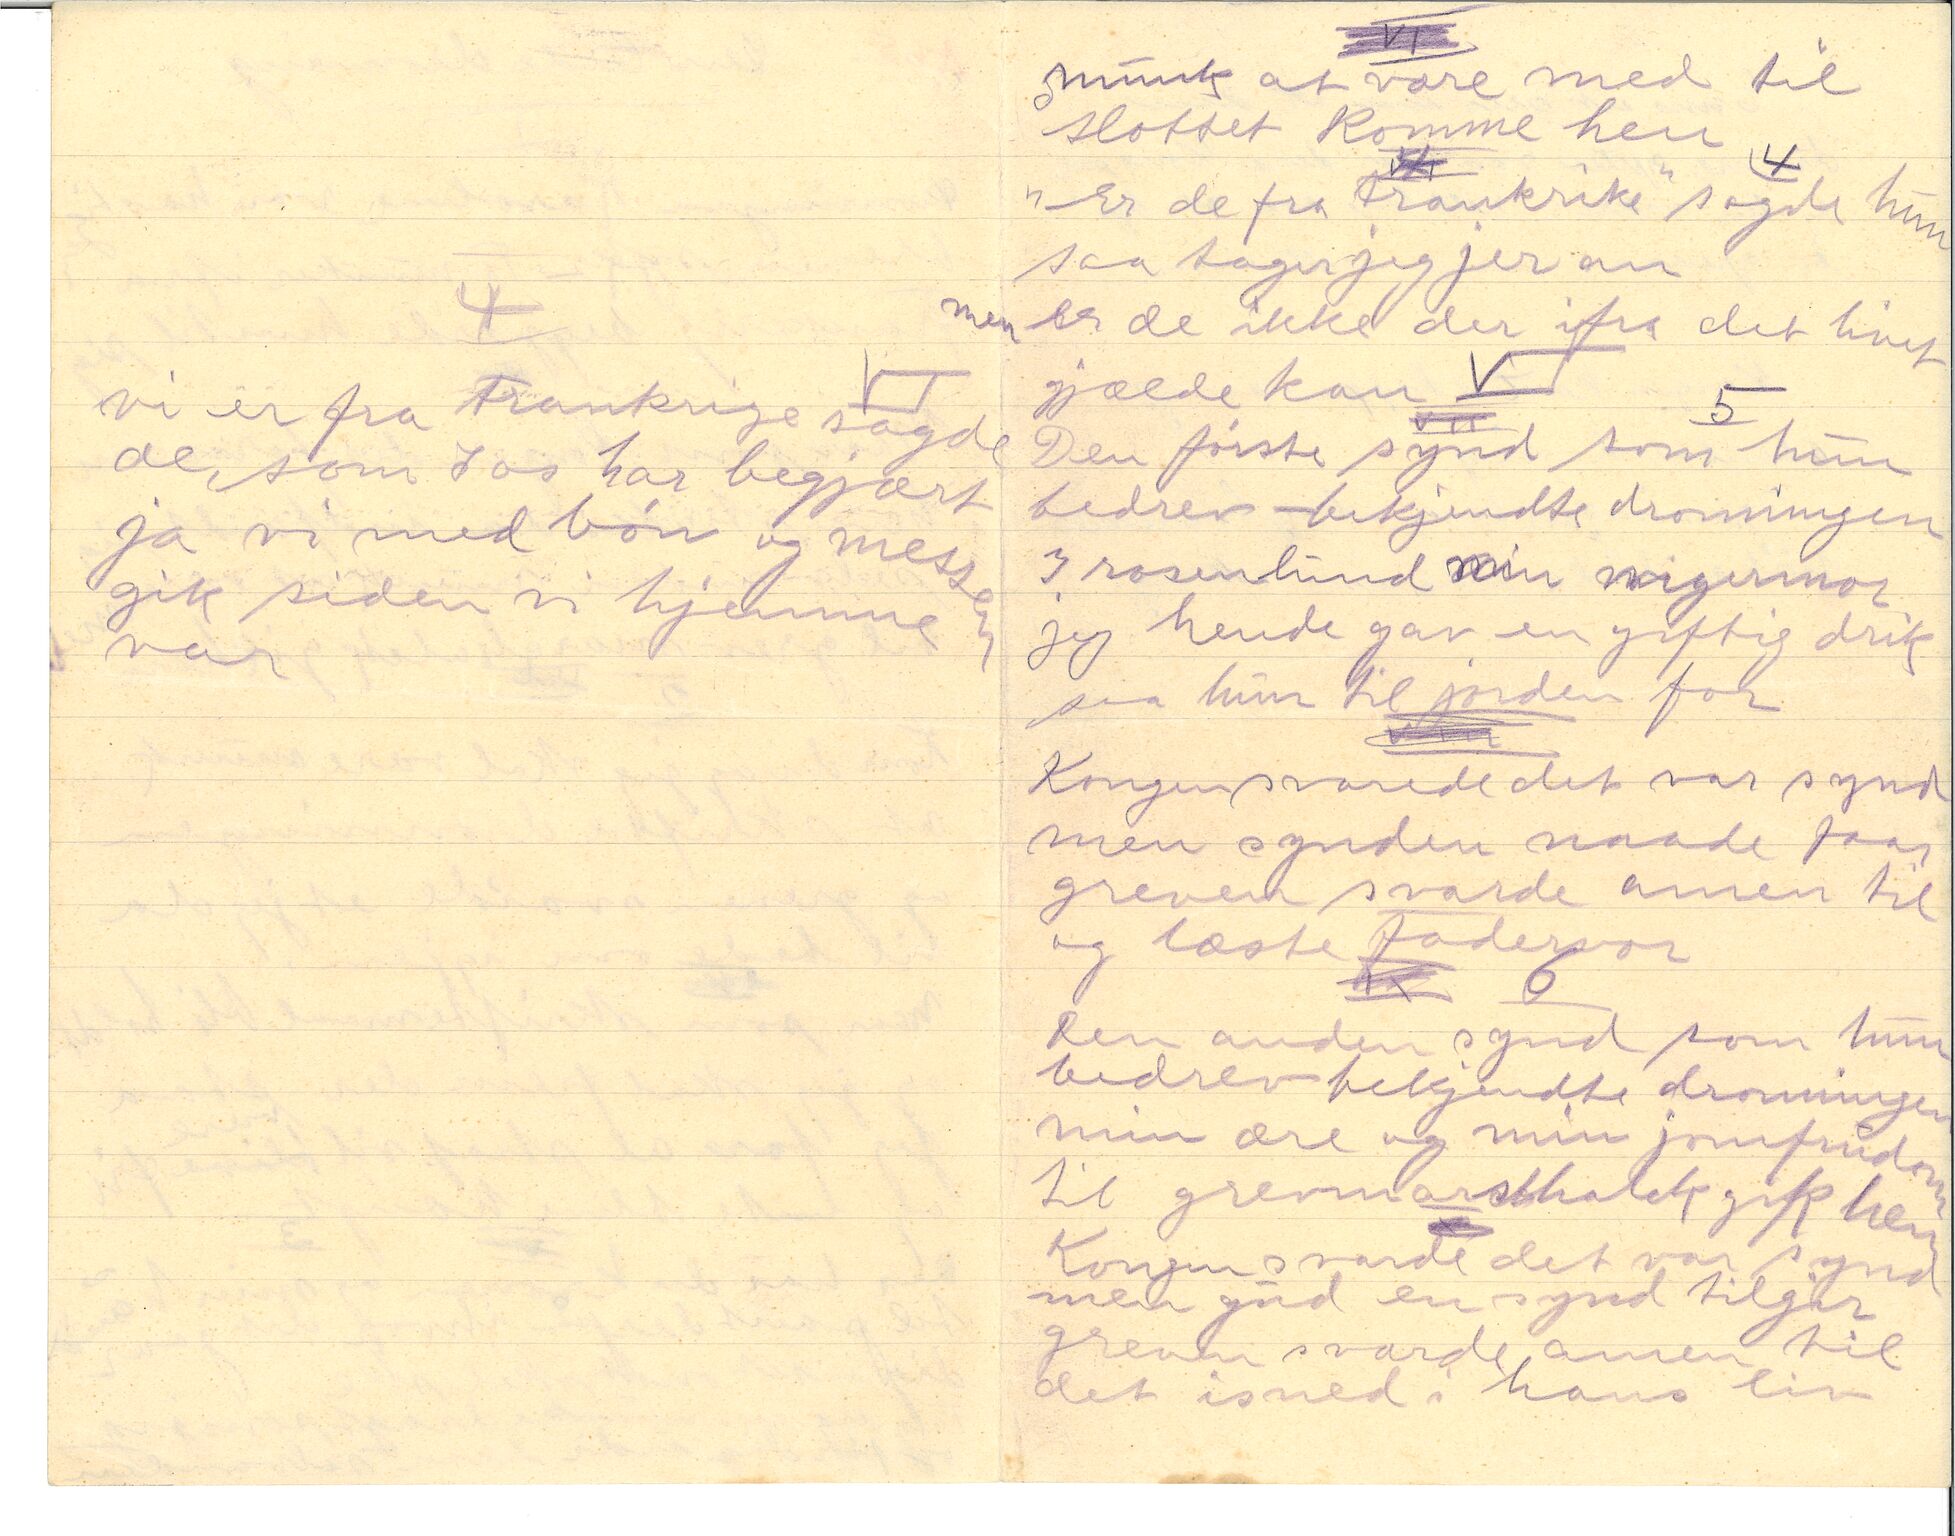 4
VI
vi er fra Frankrige sagde
de, som Jos har begjært
ja vi med bön og messen
gik siden vi hjemme
var
VI
munk at være med til
slottet komme hen
VII 4
"Er de fra Frankrike" sagde hun
saa tager jeg jer an
men er de ikke der ifra det livet
gjælde kan V
VII 5
Den förste synd som hun
bedrev bekjendte dronningen
I rosenlund min
jeg hende gav en giftig drik
saa hun til jorden for
VIII
Kongen svarede det var synd
men synden naade faar
greven svarde amen til
og læste Fadervor
IX 6
Den anden synd som hun
bedrev bekjendte dronningen
min ære og min jomfrudom
til grevmarshalck gik hen
X
Kongen svarde det var synd
men gud en synd tilgir
greven svarde amen til
det isned i hans liv